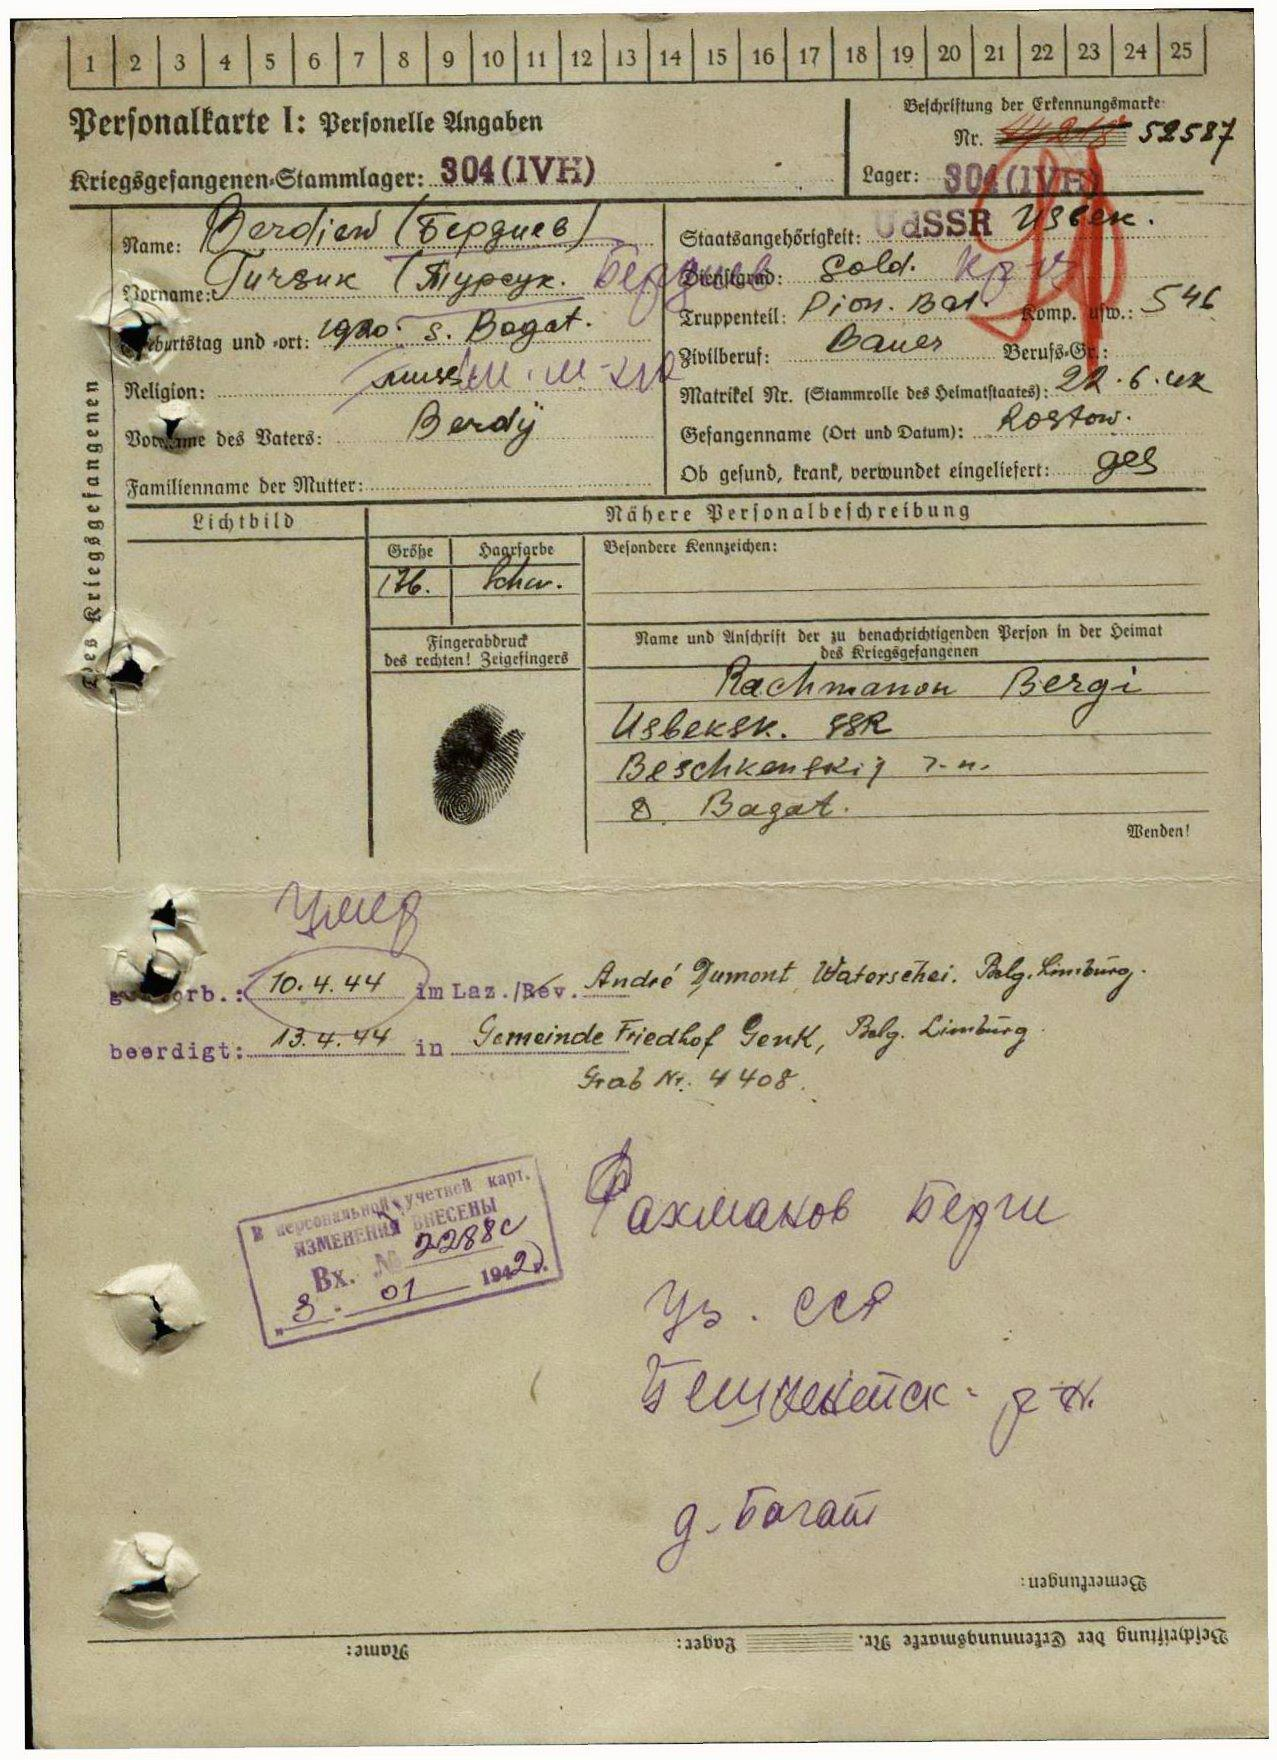 1 2 3 4 5 6 7 8 9 10 11 12 13 14 15 16 17 18 19 20 21 22 23 24 25
Personalkarte I: Personelle Angaben
Beschriftung der Erkennungsmarke
Nr. 52587
Kriegsgefangenen-Stammlager: 304 (IVH)
Lager: 304 (IVH)
Des Kriegsgefangenen
Name: Berdiew (Бердиев)
Vorname: Tursuk (Турсук. Бердиев
Geburtstag und -ort: 1920. s. Bagat.
Religion:
Vorname des Vaters: Berdÿ
Familienname der Mutter:
Staatsangehörigkeit: UdSSR Usbek.
Dienstgrad: Sold. кр-ц
Truppenteil: Pion. Bat. Komp. usw.: 546
Zivilberuf: Bauer Berufs-Gr.:
Matrikel Nr. (Stammrolle des Heimatstaates): 22.6.42
Gefangenname (Ort und Datum): Rostow.
Ob gesund, krank, verwundet eingeliefert: ges
Lichtbild
Nähere Personalbeschreibung
Größe Haarfarbe
176. Schw.
Besondere Kennzeichen:
Fingerabdruck
des rechten! Zeigefingers
Name und Anschrift der zu benachrichtigenden Person in der Heimat
des Kriegsgefangenen
Rachmanow Bergi
Usbeksk. SSR
Beschkenskij r-n.
d. Bagat.
Wenden!
Умер
gestorb.: 10.4.44 im Laz./Rev. André Dumont Waterschei. Belg. Limburg.
beerdigt: 13.4.44 in Gemeinde Friedhof Genk, Belg. Limburg.
Grab Nr. 4408.
В персональной учетной карт.
ИЗМЕНЕНИЯ ВНЕСЕНЫ
Вх. № 2288с
"3." 01 194 г.
Рахманов Берги
Уз. ССР
Бешкентск- р-н.
д. Багат
Bemerkungen:
Beschriftung der Erkennungsmarke Nr. Lager: Name: